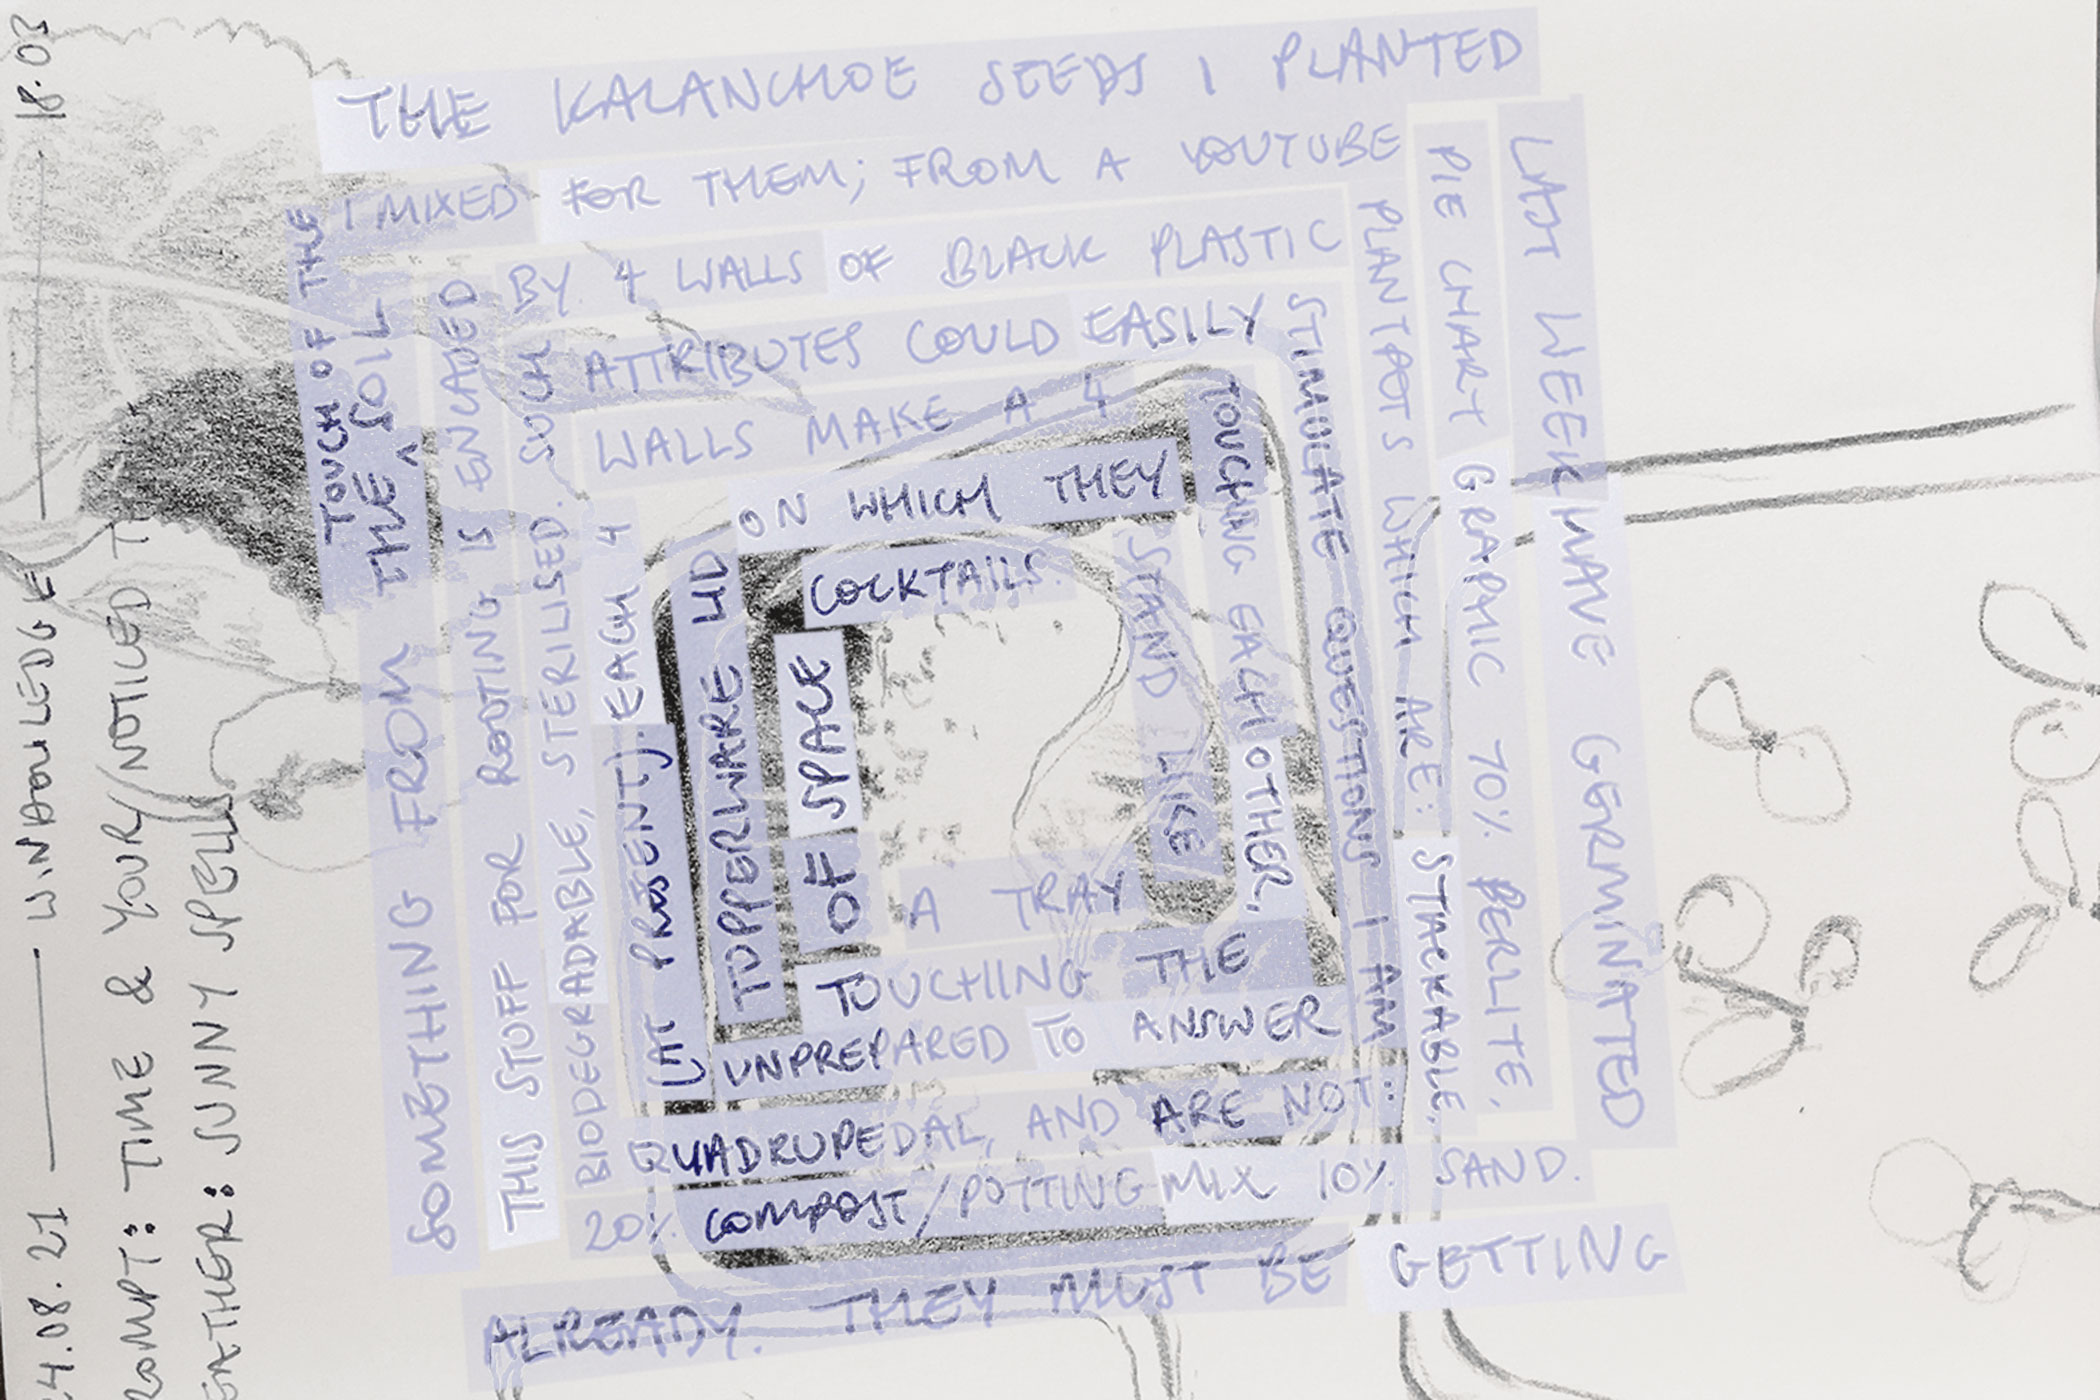 4.08.21 — WINDOWLEDGE — 18.03
ROMPT: TIME & YOUR/NOTICED
EATHER: SUNNY SPELLS
THE KALANCHOE SEEDS I PLANTED
LAST WEEK HAVE GERMINATED
ALREADY. THEY MUST BE GETTING
SOMETHING FROM THE TOUCH OF THE SOIL
I MIXED FOR THEM; FROM A YOUTUBE
PIE CHART GRAPHIC 70% PERLITE,
20% COMPOST/POTTING MIX 10% SAND.
THIS STUFF FOR ROOTING IS ENCASED
BY 4 WALLS OF BLACK PLASTIC
PLANTPOTS WHICH ARE: STACKABLE,
QUADRUPEDAL, AND ARE NOT:
BIODEGRADABLE, STERILISED. SUCH
ATTRIBUTES COULD EASILY
STIMULATE QUESTIONS I AM
UNPREPARED TO ANSWER
(AT PRESENT). EACH 4
WALLS MAKE A 4
TOUCHING EACH OTHER,
TOUCHING THE
TOPPERWARE LID
ON WHICH THEY
STAND LIKE
A TRAY
OF SPACE
COCKTAILS.